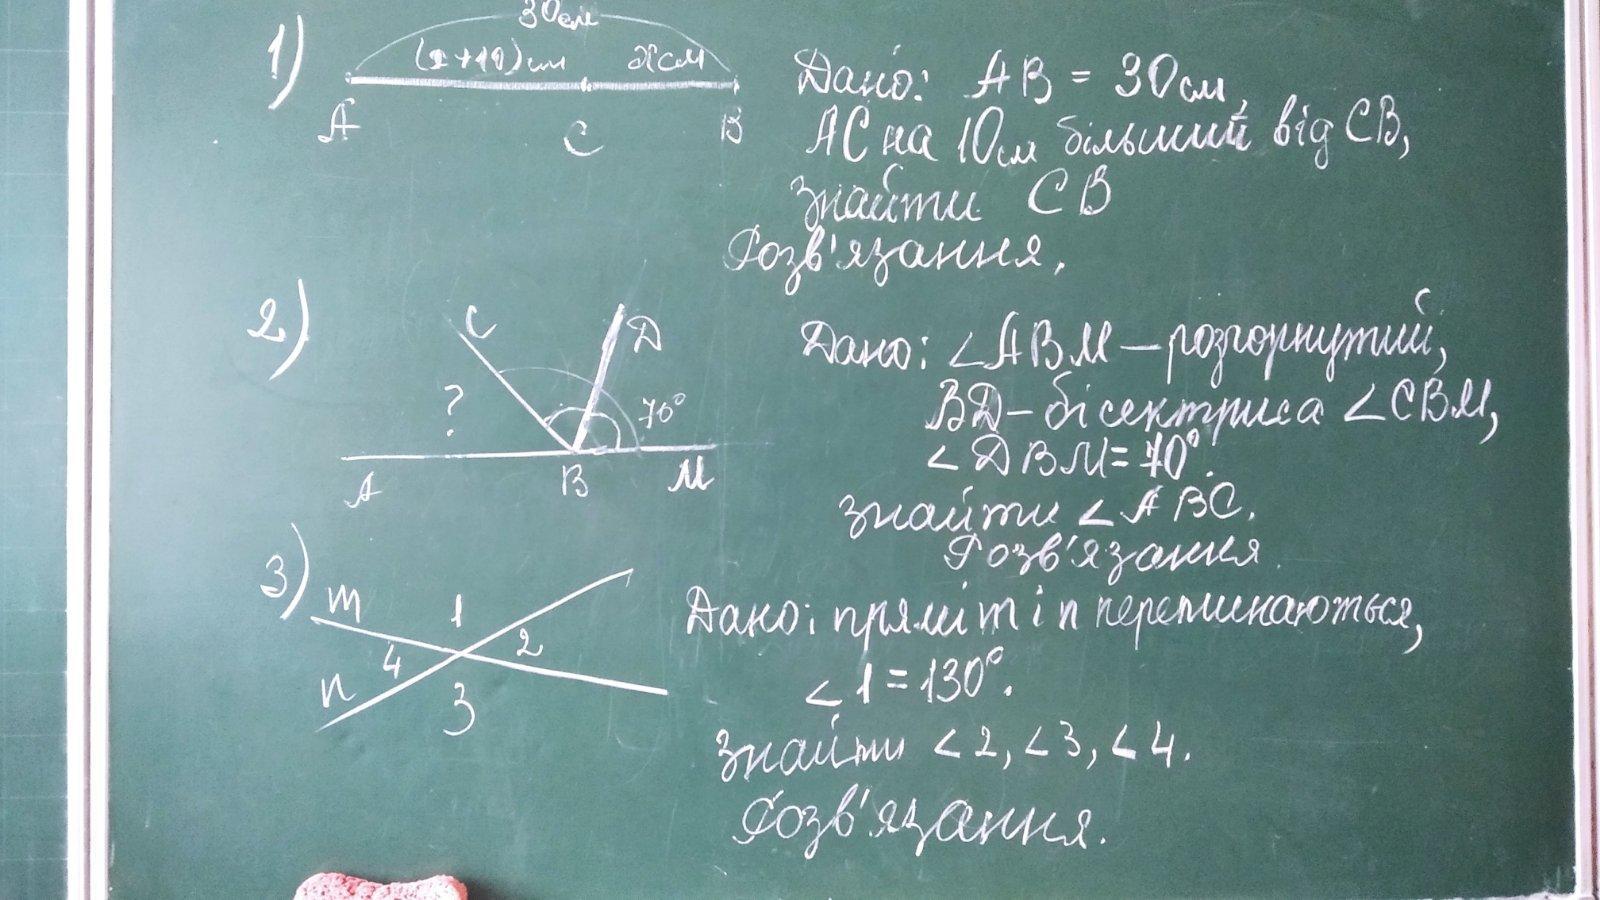 1)
30см
(x+10)см
xсм
A
C
B
Дано: AB = 30см,
AC на 10см більший від CB,
Знайти CB
Розв'язання.
2)
C
D
?
70°
A
B
M
Дано: ∠ABM — розгорнутий,
BD — бісектриса ∠CBM,
∠DBM = 70°.
Знайти ∠ABC.
Розв'язання.
3)
m
1
2
4
n
3
Дано: прямі m і n перетинаються,
∠1 = 130°.
Знайти ∠2, ∠3, ∠4.
Розв'язання.